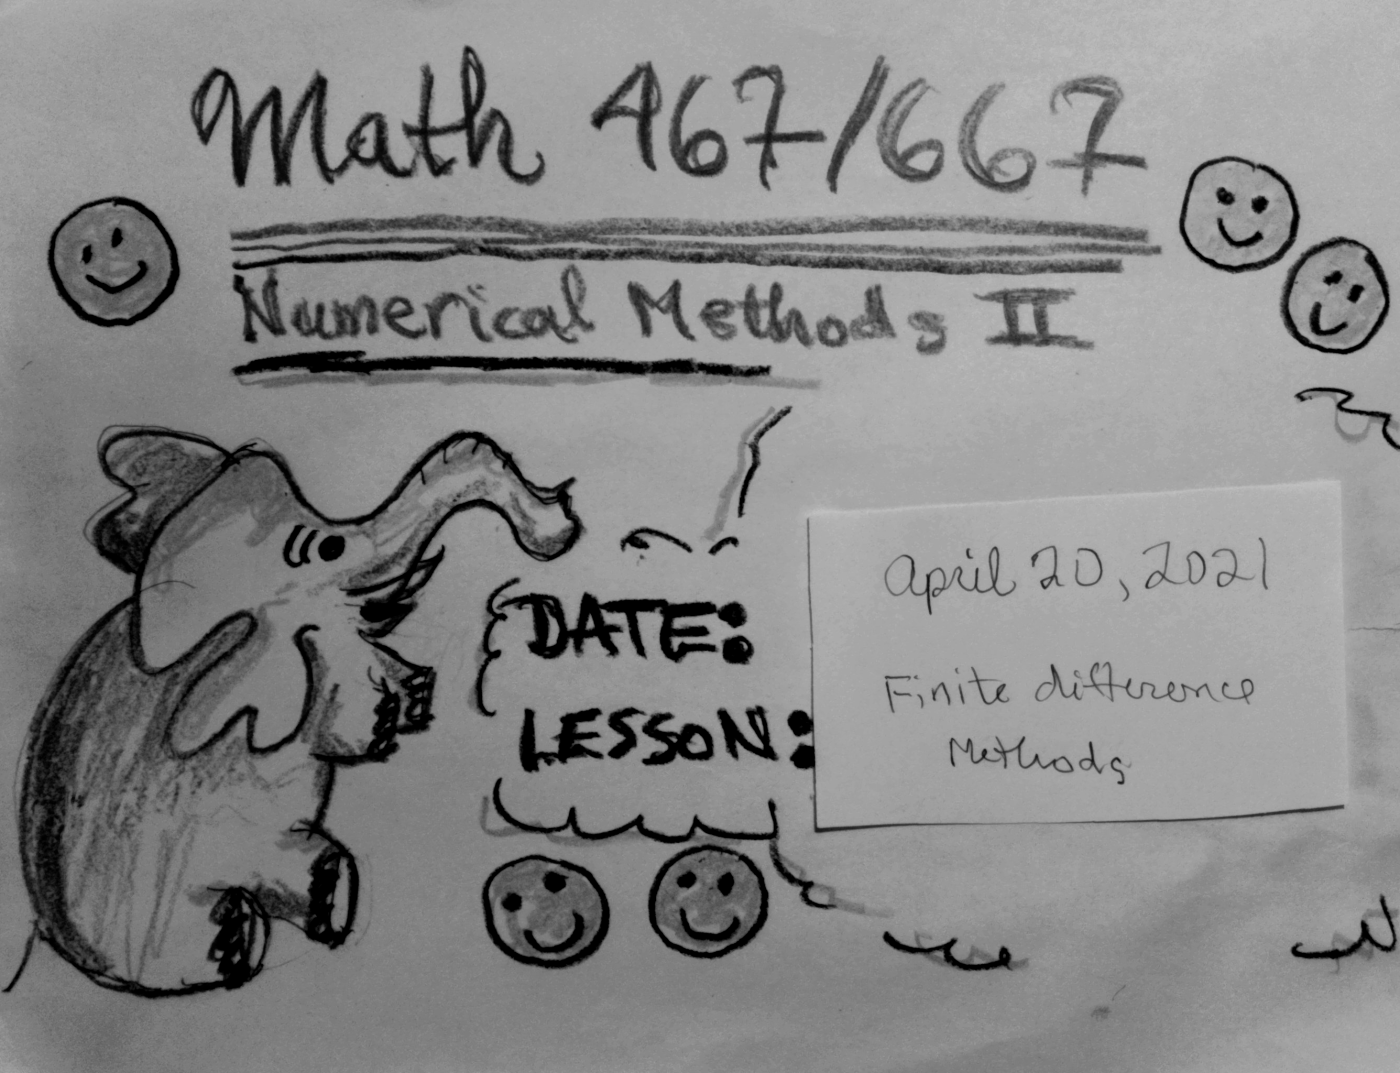 Math 467/667
Numerical Methods II
DATE:
April 20, 2021
LESSON:
Finite difference
Methods